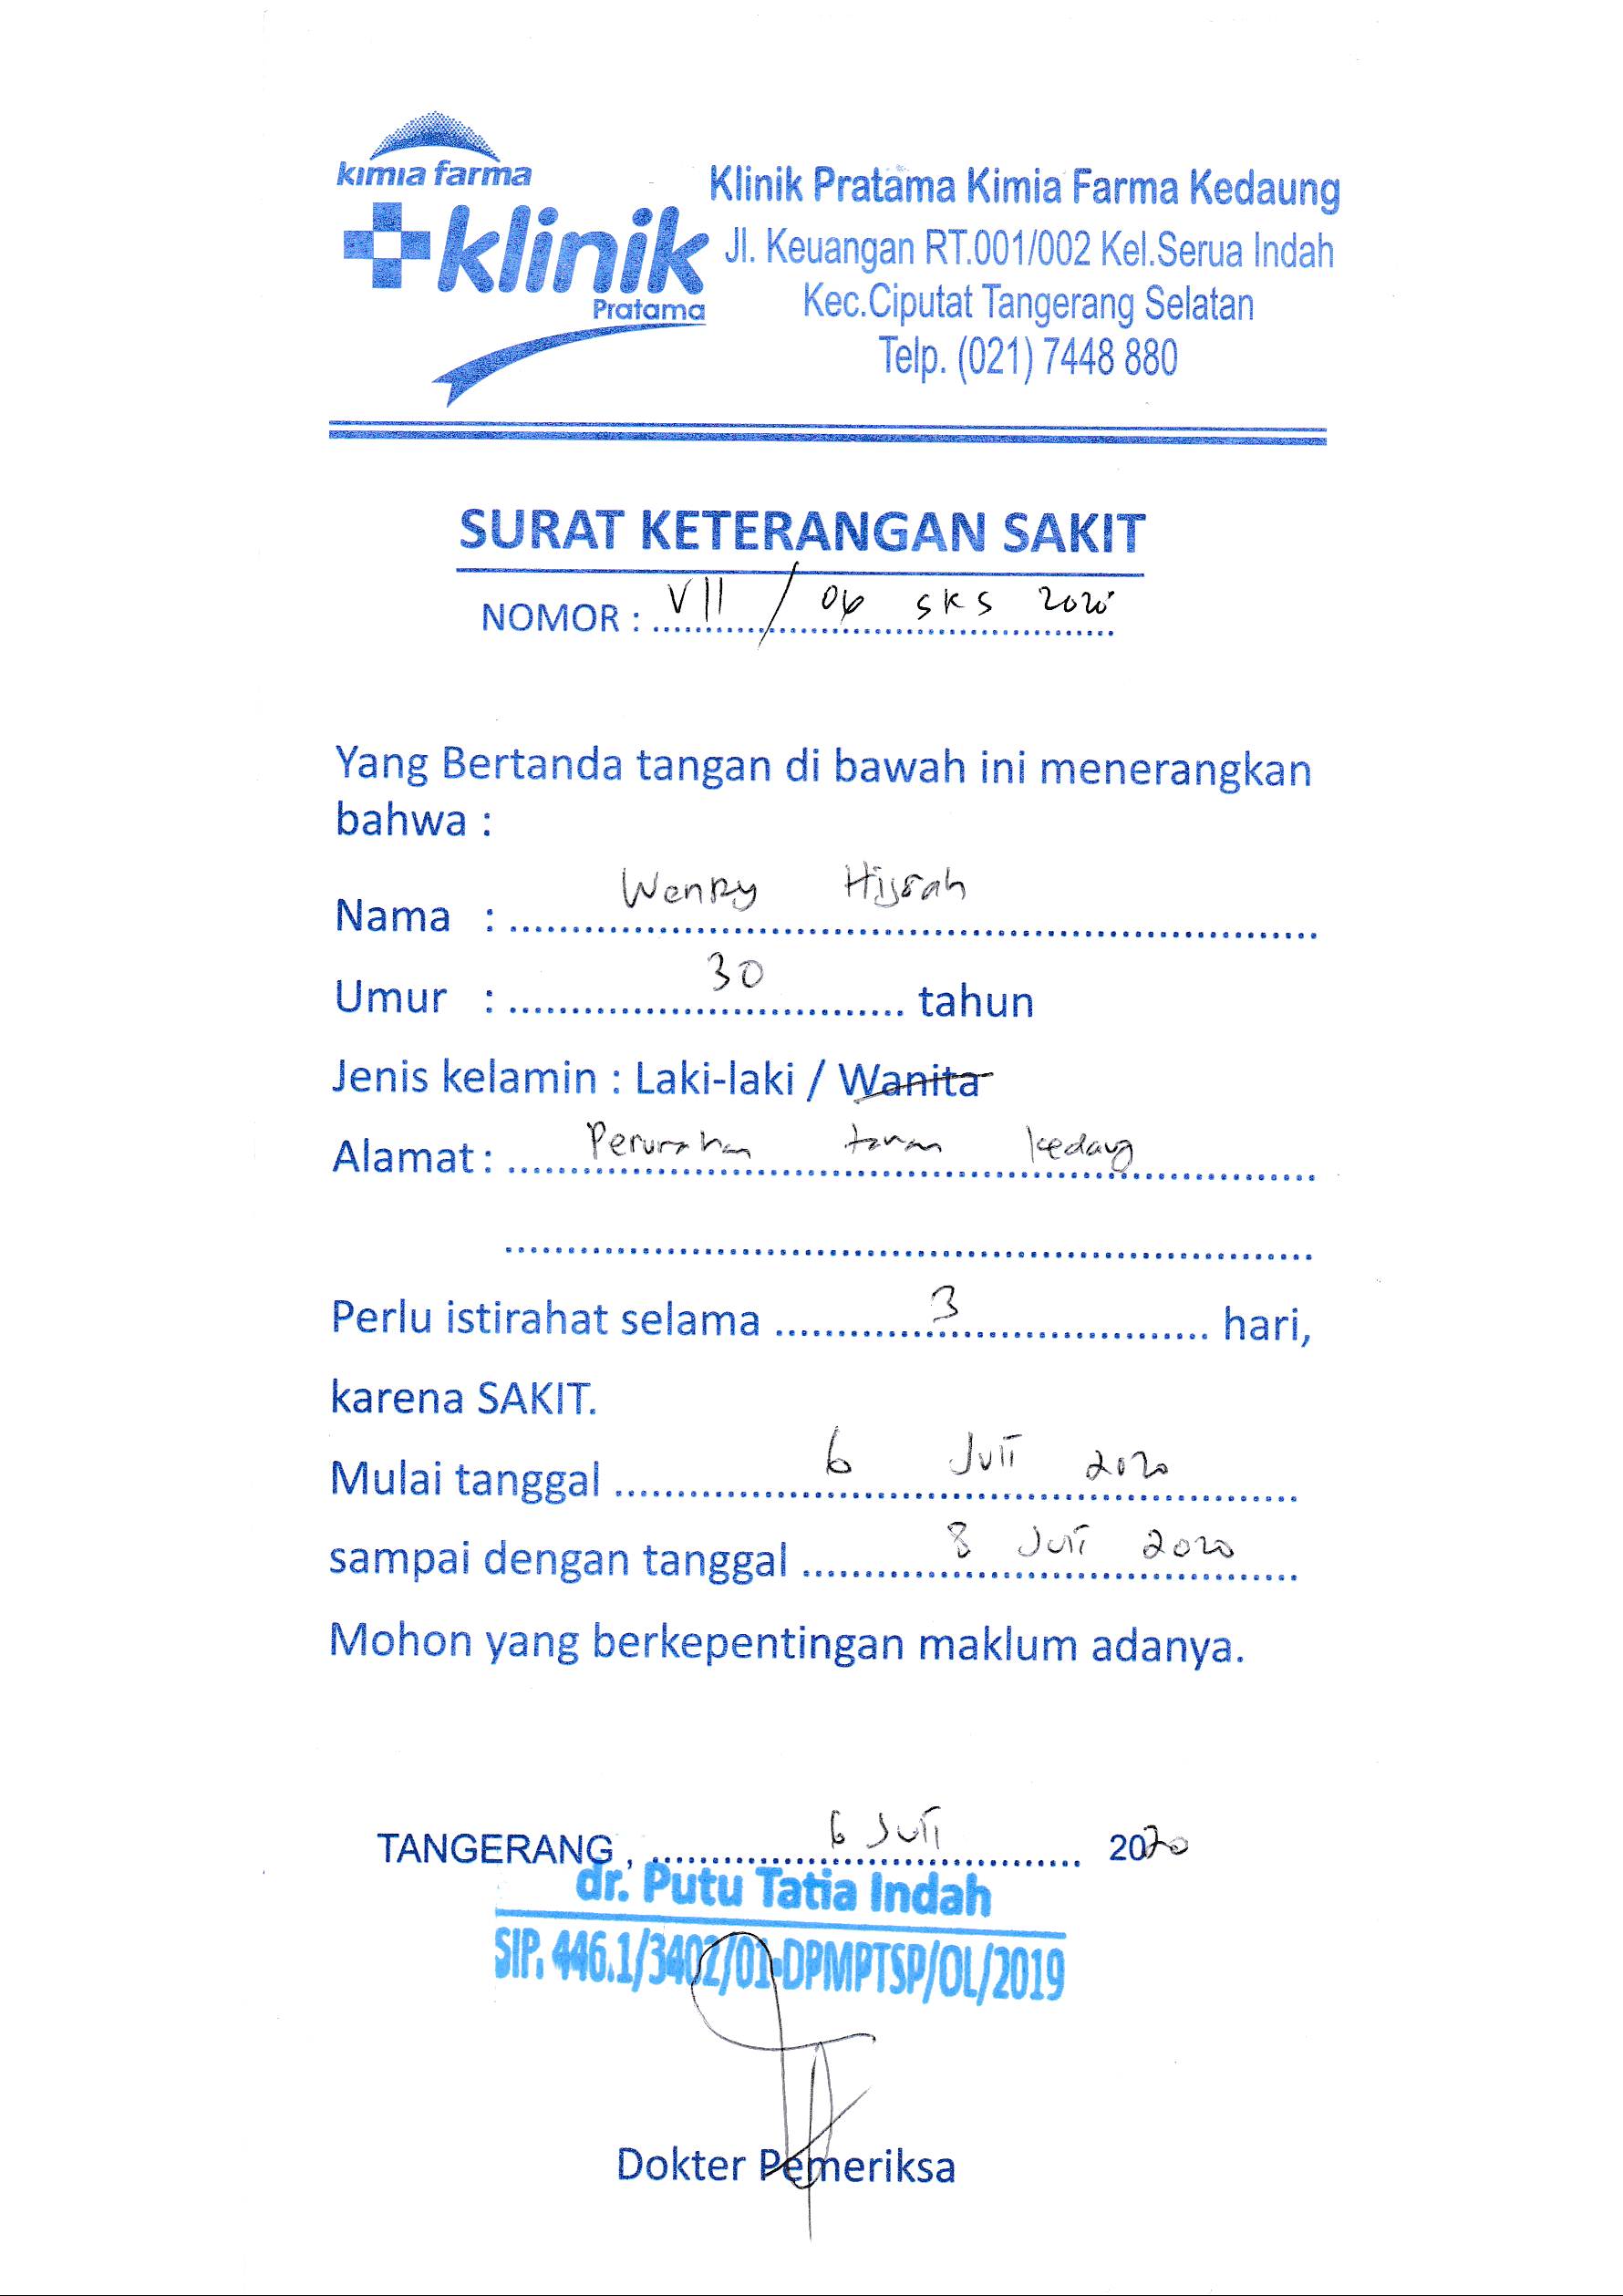 kimia farma
klinik
Pratama
Klinik Pratama Kimia Farma Kedaung
Jl. Keuangan RT.001/002 Kel.Serua Indah
Kec.Ciputat Tangerang Selatan
Telp. (021) 7448 880
SURAT KETERANGAN SAKIT
NOMOR : VII / 06 SKS 2020
Yang Bertanda tangan di bawah ini menerangkan
bahwa :
Nama : Hijrah
Umur : 30 tahun
Jenis kelamin : Laki-laki / Wanita
Alamat : kedaung
Perlu istirahat selama 3 hari,
karena SAKIT.
Mulai tanggal 6 Juli 2020
sampai dengan tanggal 8 Juli 2020
Mohon yang berkepentingan maklum adanya.
TANGERANG , 6 Juli 2020
dr. Putu Tatia Indah
SIP. 446.1/3402/01-DPMPTSP/OL/2019
Dokter Pemeriksa